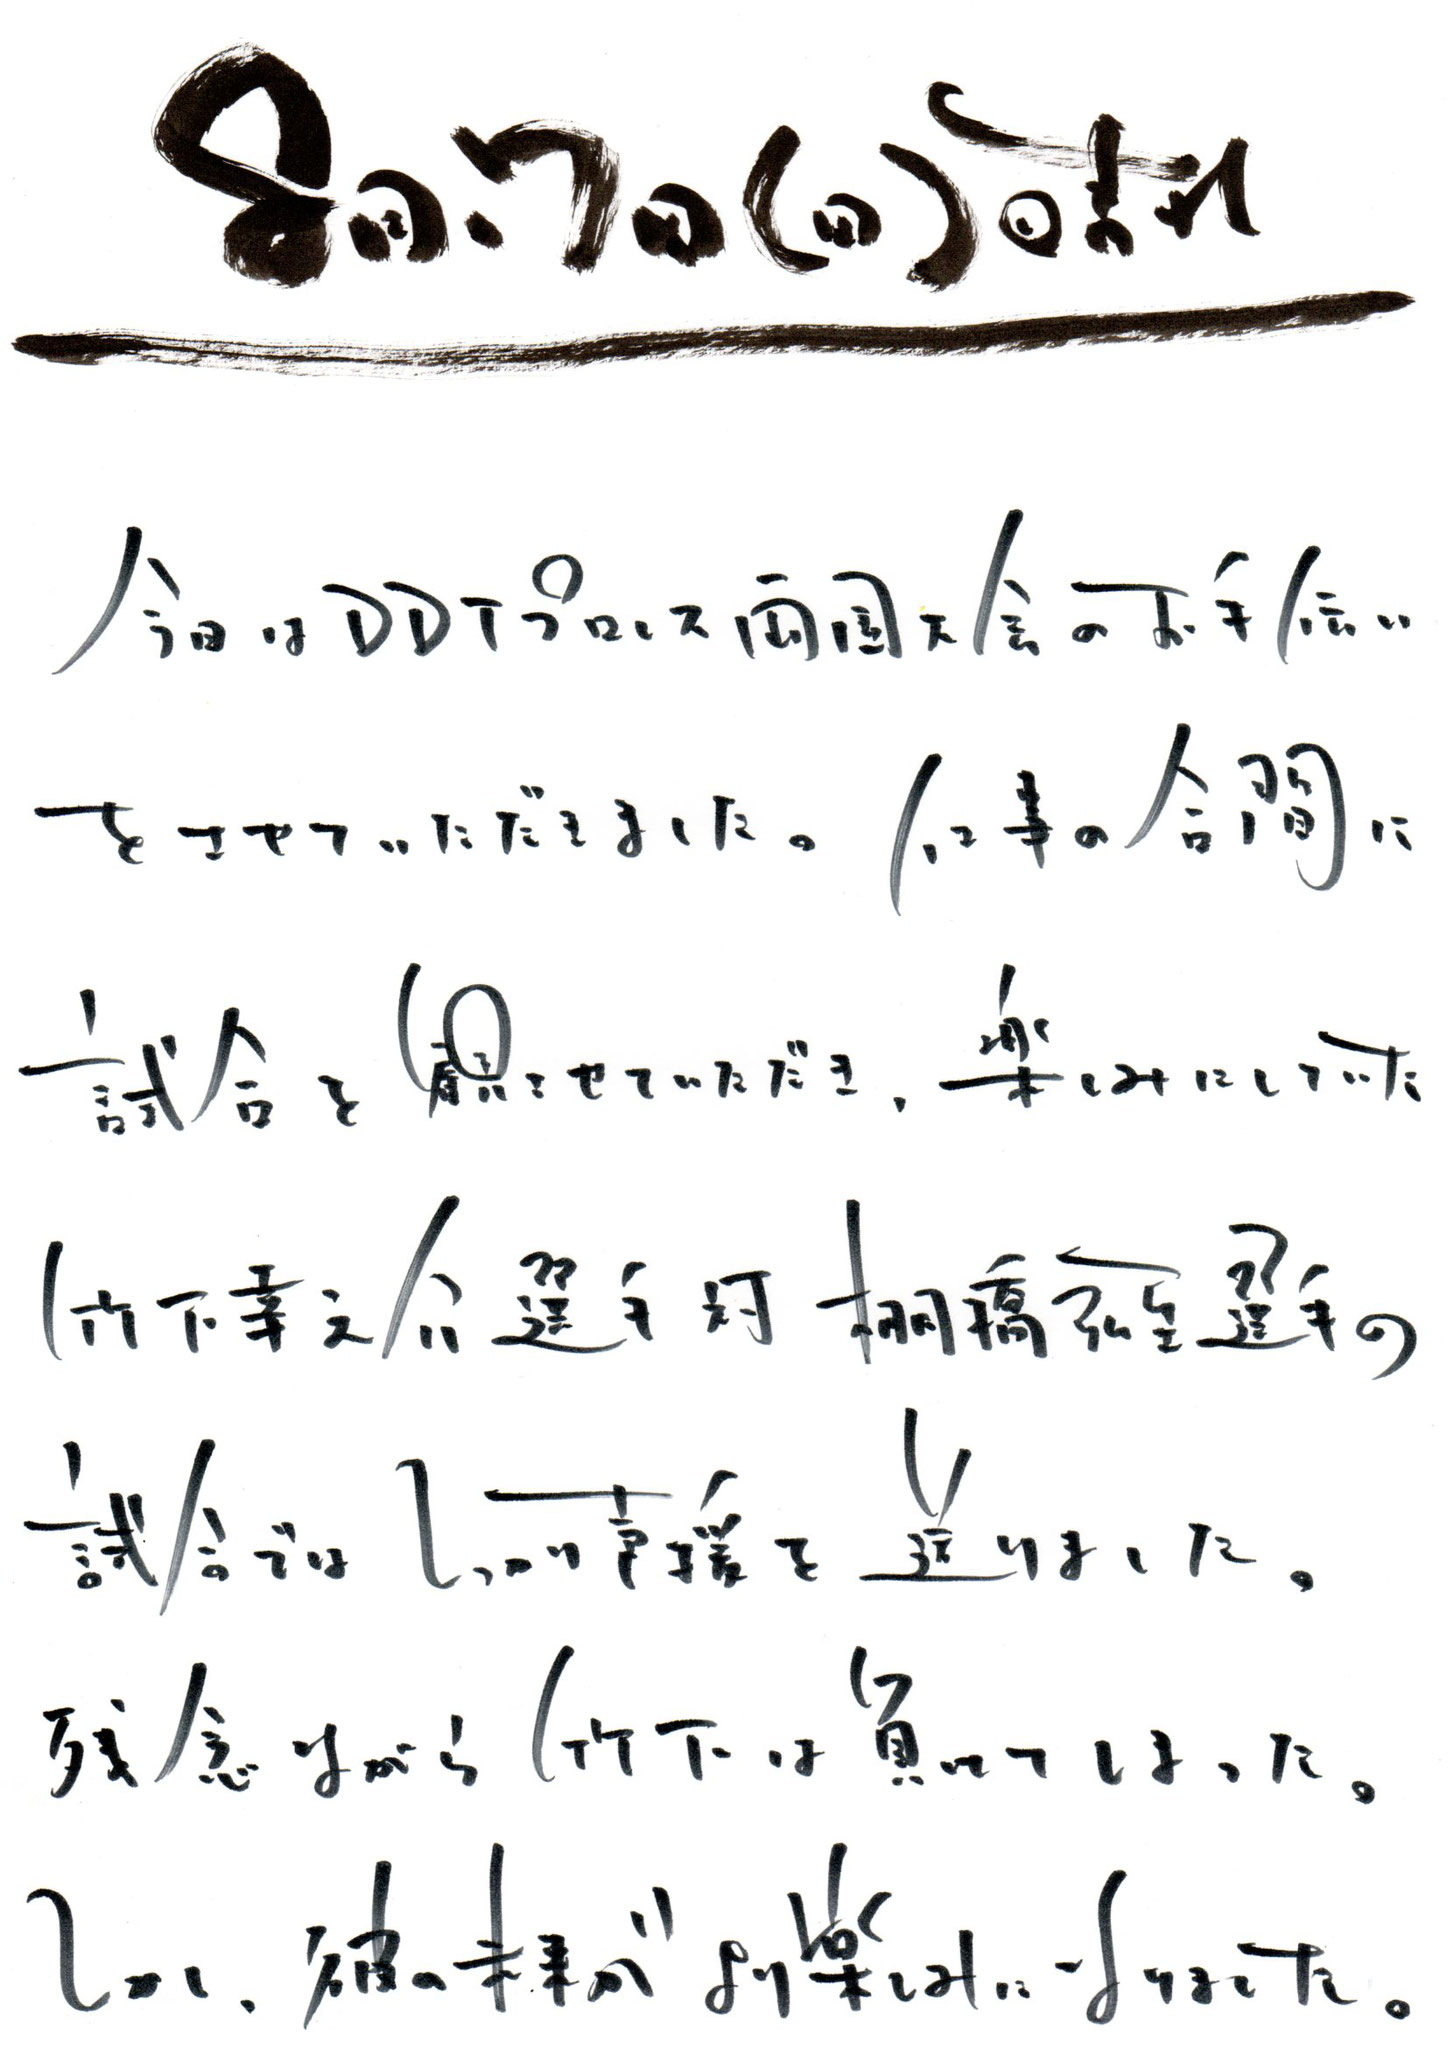 8月17日(日)日記
今日はDDTプロレス両国大会のお手伝い
をさせていただきました。仕事の合間に
試合を観させていただき、楽しみにしていた
竹下幸之介選手対棚橋弘至選手の
試合ではしっかり声援を送りました。
残念ながら竹下は負けてしまった。
しかし、の未来がより楽しみになりました。